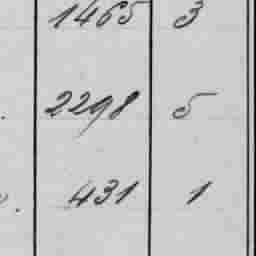 1465 3
2298 5
431 1